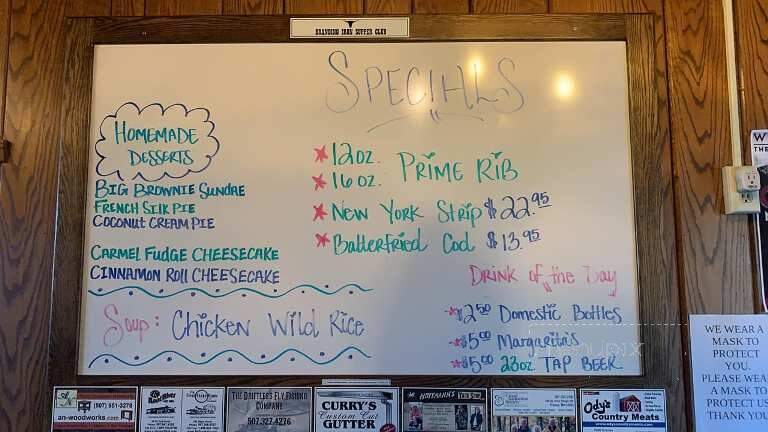 BRANDING IRON SUPPER CLUB
SPECIALS
HOMEMADE
DESSERTS
BIG BROWNIE SUNDAE
FRENCH SILK PIE
COCONUT CREAM PIE
CARMEL FUDGE CHEESECAKE
CINNAMON ROLL CHEESECAKE
Soup: Chicken Wild Rice
12oz. PRIME RIB
16oz.
NEW YORK STRIP $22.95
Batterfried Cod $13.95
DRINK of the Day
$2.50 Domestic Bottles
$5.00 Margarita's
$5.00 23oz TAP BEER
WE WEAR A
MASK TO
PROTECT
YOU.
PLEASE WEAR
A MASK TO
PROTECT US
THANK YOU
(507) 551-3278
an-woodworks.com
THE DRIFTER'S FLY FISHING
COMPANY
507.327.4276
CURRY'S
Custom Cut
GUTTER
HOFFMANN'S
Ody's
Country Meats